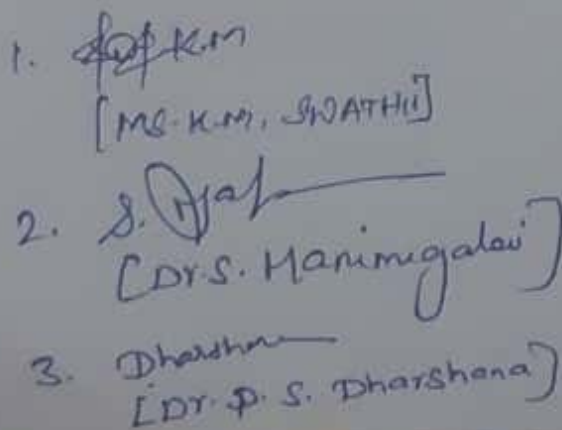 1. K.M
[MS. K.M. SWATHI]
2. S.
[Dr. S. Manimegalai]
3. Dharshana
[Dr. P. S. Dharshana]